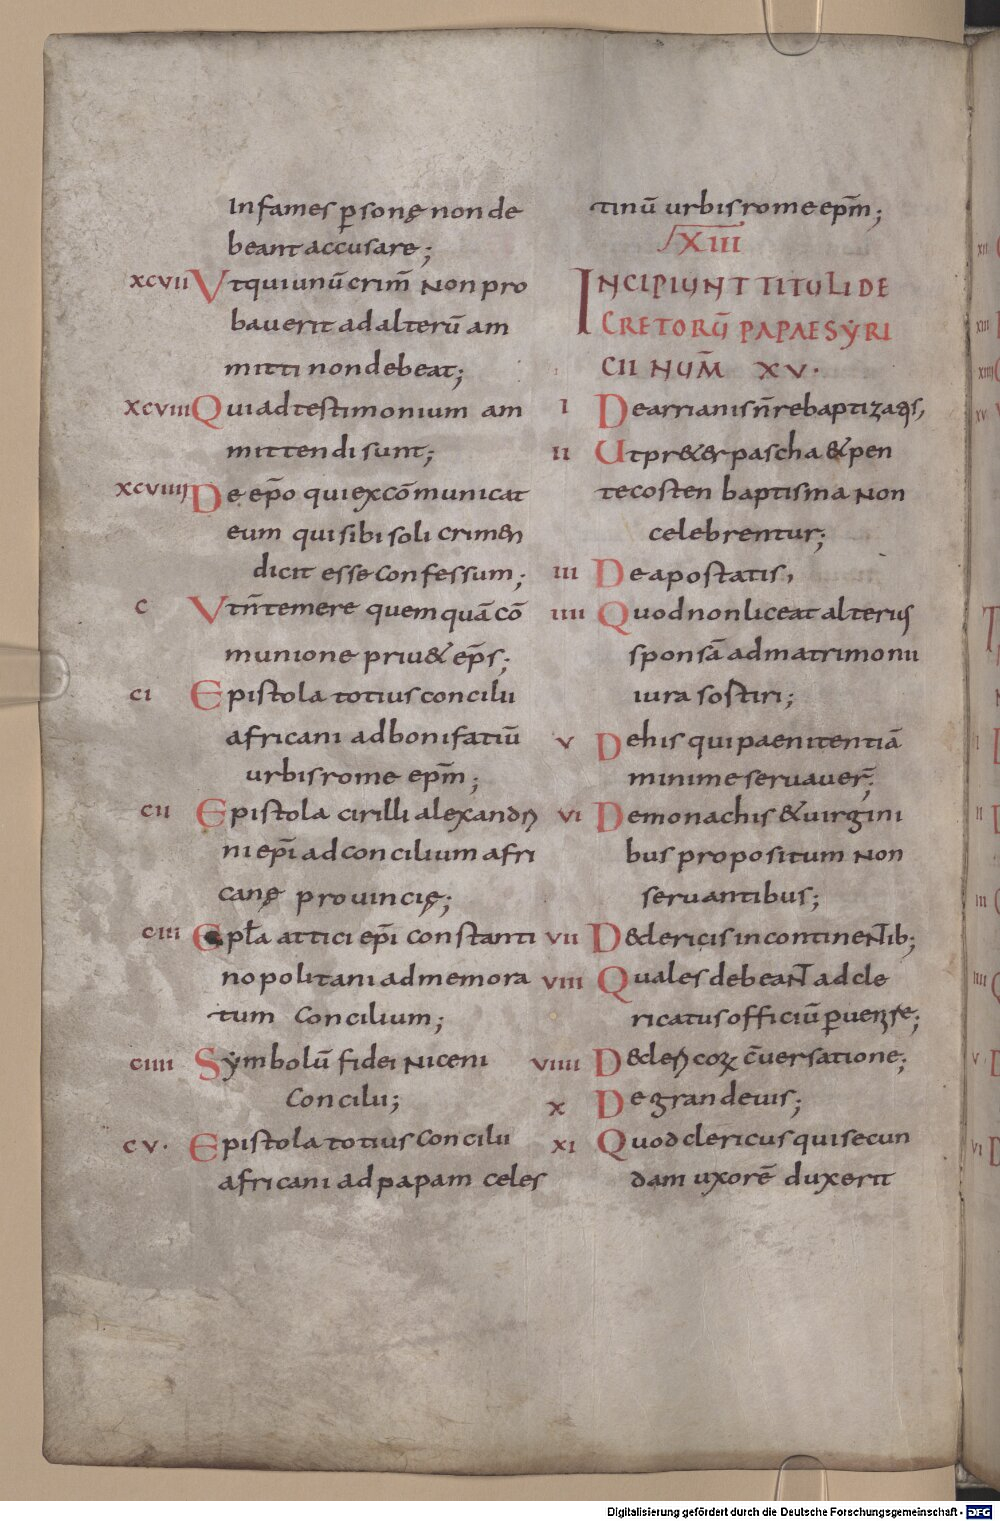 Infames p̲sonę non de
beant accusare;
XCVII Vt qui unū crim̄ non pro
bauerit ad alterū am
mitti non debeat;
XCVIII Qui ad testimonium am
mittendi sunt;
XCVIIII De ep̄o qui excōmunicat
eum qui sibi soli crimen
dicit esse confessum;
C Vt n̄ temere quemquā cō
munione priu& ep̄s;
CI Epistola totius concilii
africani ad bonifatiū
urbis rome ep̄m;
CII Epistola cirilli alexandri
ni ep̄i ad concilium afri
canę prouincię;
CIII Epł̄a attici ep̄i constanti
nopolitani ad memora
tum concilium;
CIIII Sẏmbolū fidei niceni
concilii;
CV. Epistola totius concilii
africani ad papam celes
tinū urbis rome ep̄m;
XIII
INCIPIUNT TITULI DE
CRETORŪ PAPAE SẎRI
CII NUM̄ XV.
I De arrianis n̄ rebaptizandis,
II Ut pr&er pascha & pen
tecosten baptisma non
celebrentur;
III De apostatis,
IIII Quod non liceat alterius
sponsā ad matrimonii
iura sostiri;
V De his qui paenitentiā
minime seruauer̄;
VI De monachis & uirgini
bus propositum non
seruantibus;
VII De clericis incontinentib;
VIII Quales debeant ad cle
ricatus officiū p̲uenire;
VIIII De clericoꝝ c̄uersatione;
X De grandeuis;
XI Quod clericus qui secun
dam uxorē duxerit
Digitalisierung gefördert durch die Deutsche Forschungsgemeinschaft - DFG